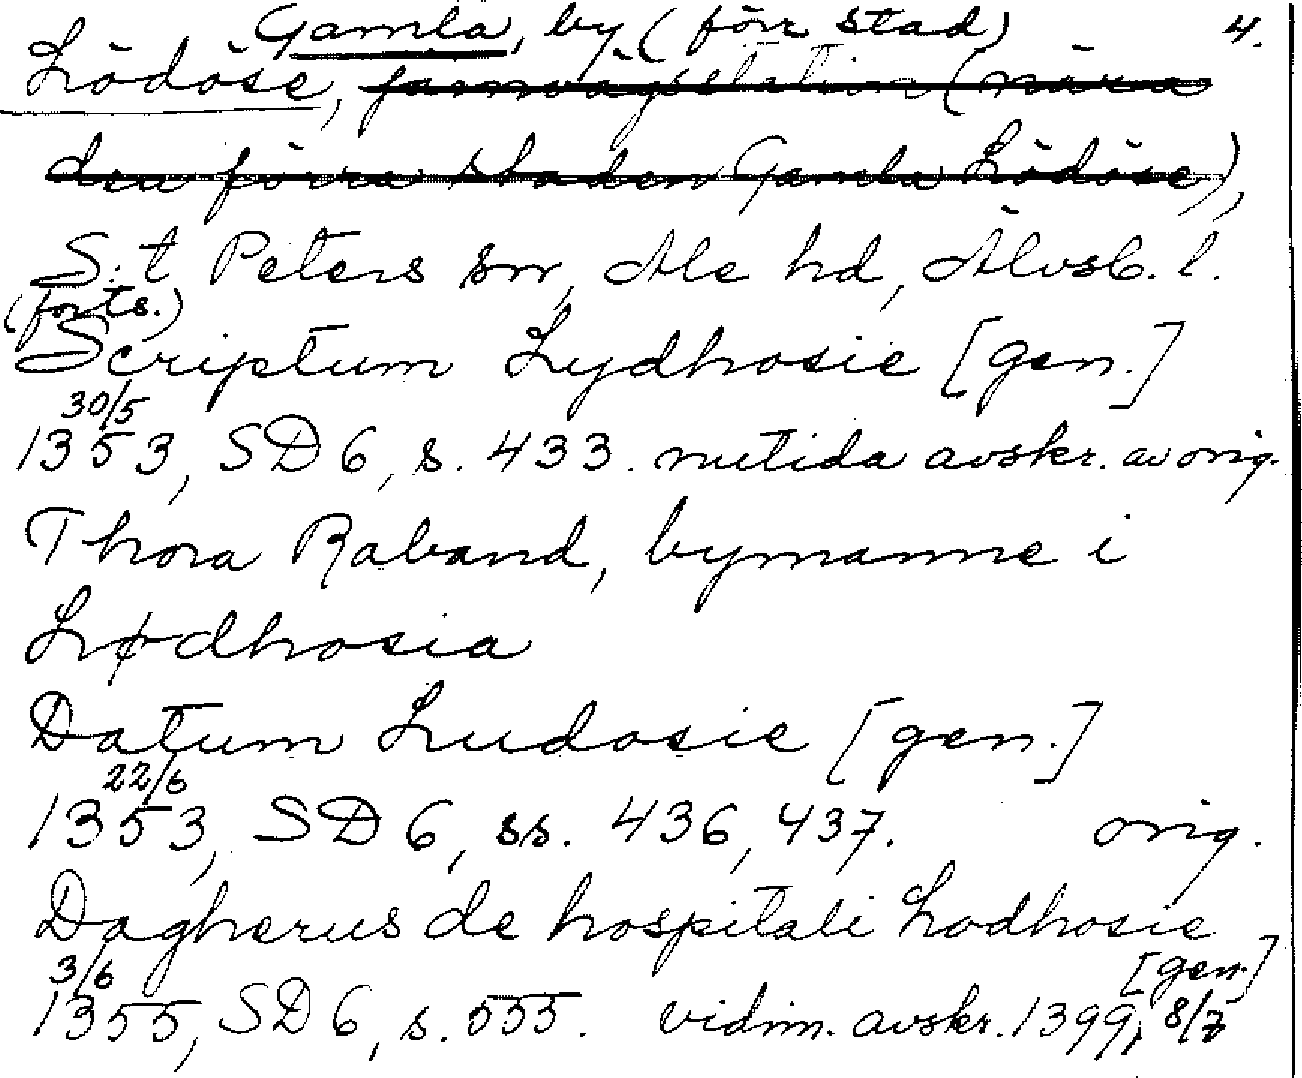 Gamla, by (förr stad) 4.
Lödöse, järnvägsstation (nära
den förra staden Gamla Lödöse),
S:t Peters sn, Ale hd, Älvsb. l.
(forts.)
Scriptum Lydhosie [gen.]
30/5
1353, SD 6, s. 433. nutida avskr. av orig.
Thora Raband, bymanne i
Lødhosia
Datum Ludosie [gen.]
22/6
1353, SD 6, ss. 436, 437. orig.
Dagherus de hospitali Lodhosie
3/6 [gen.]
1355, SD 6, s. 555. vidim. avskr. 1399, 8/7